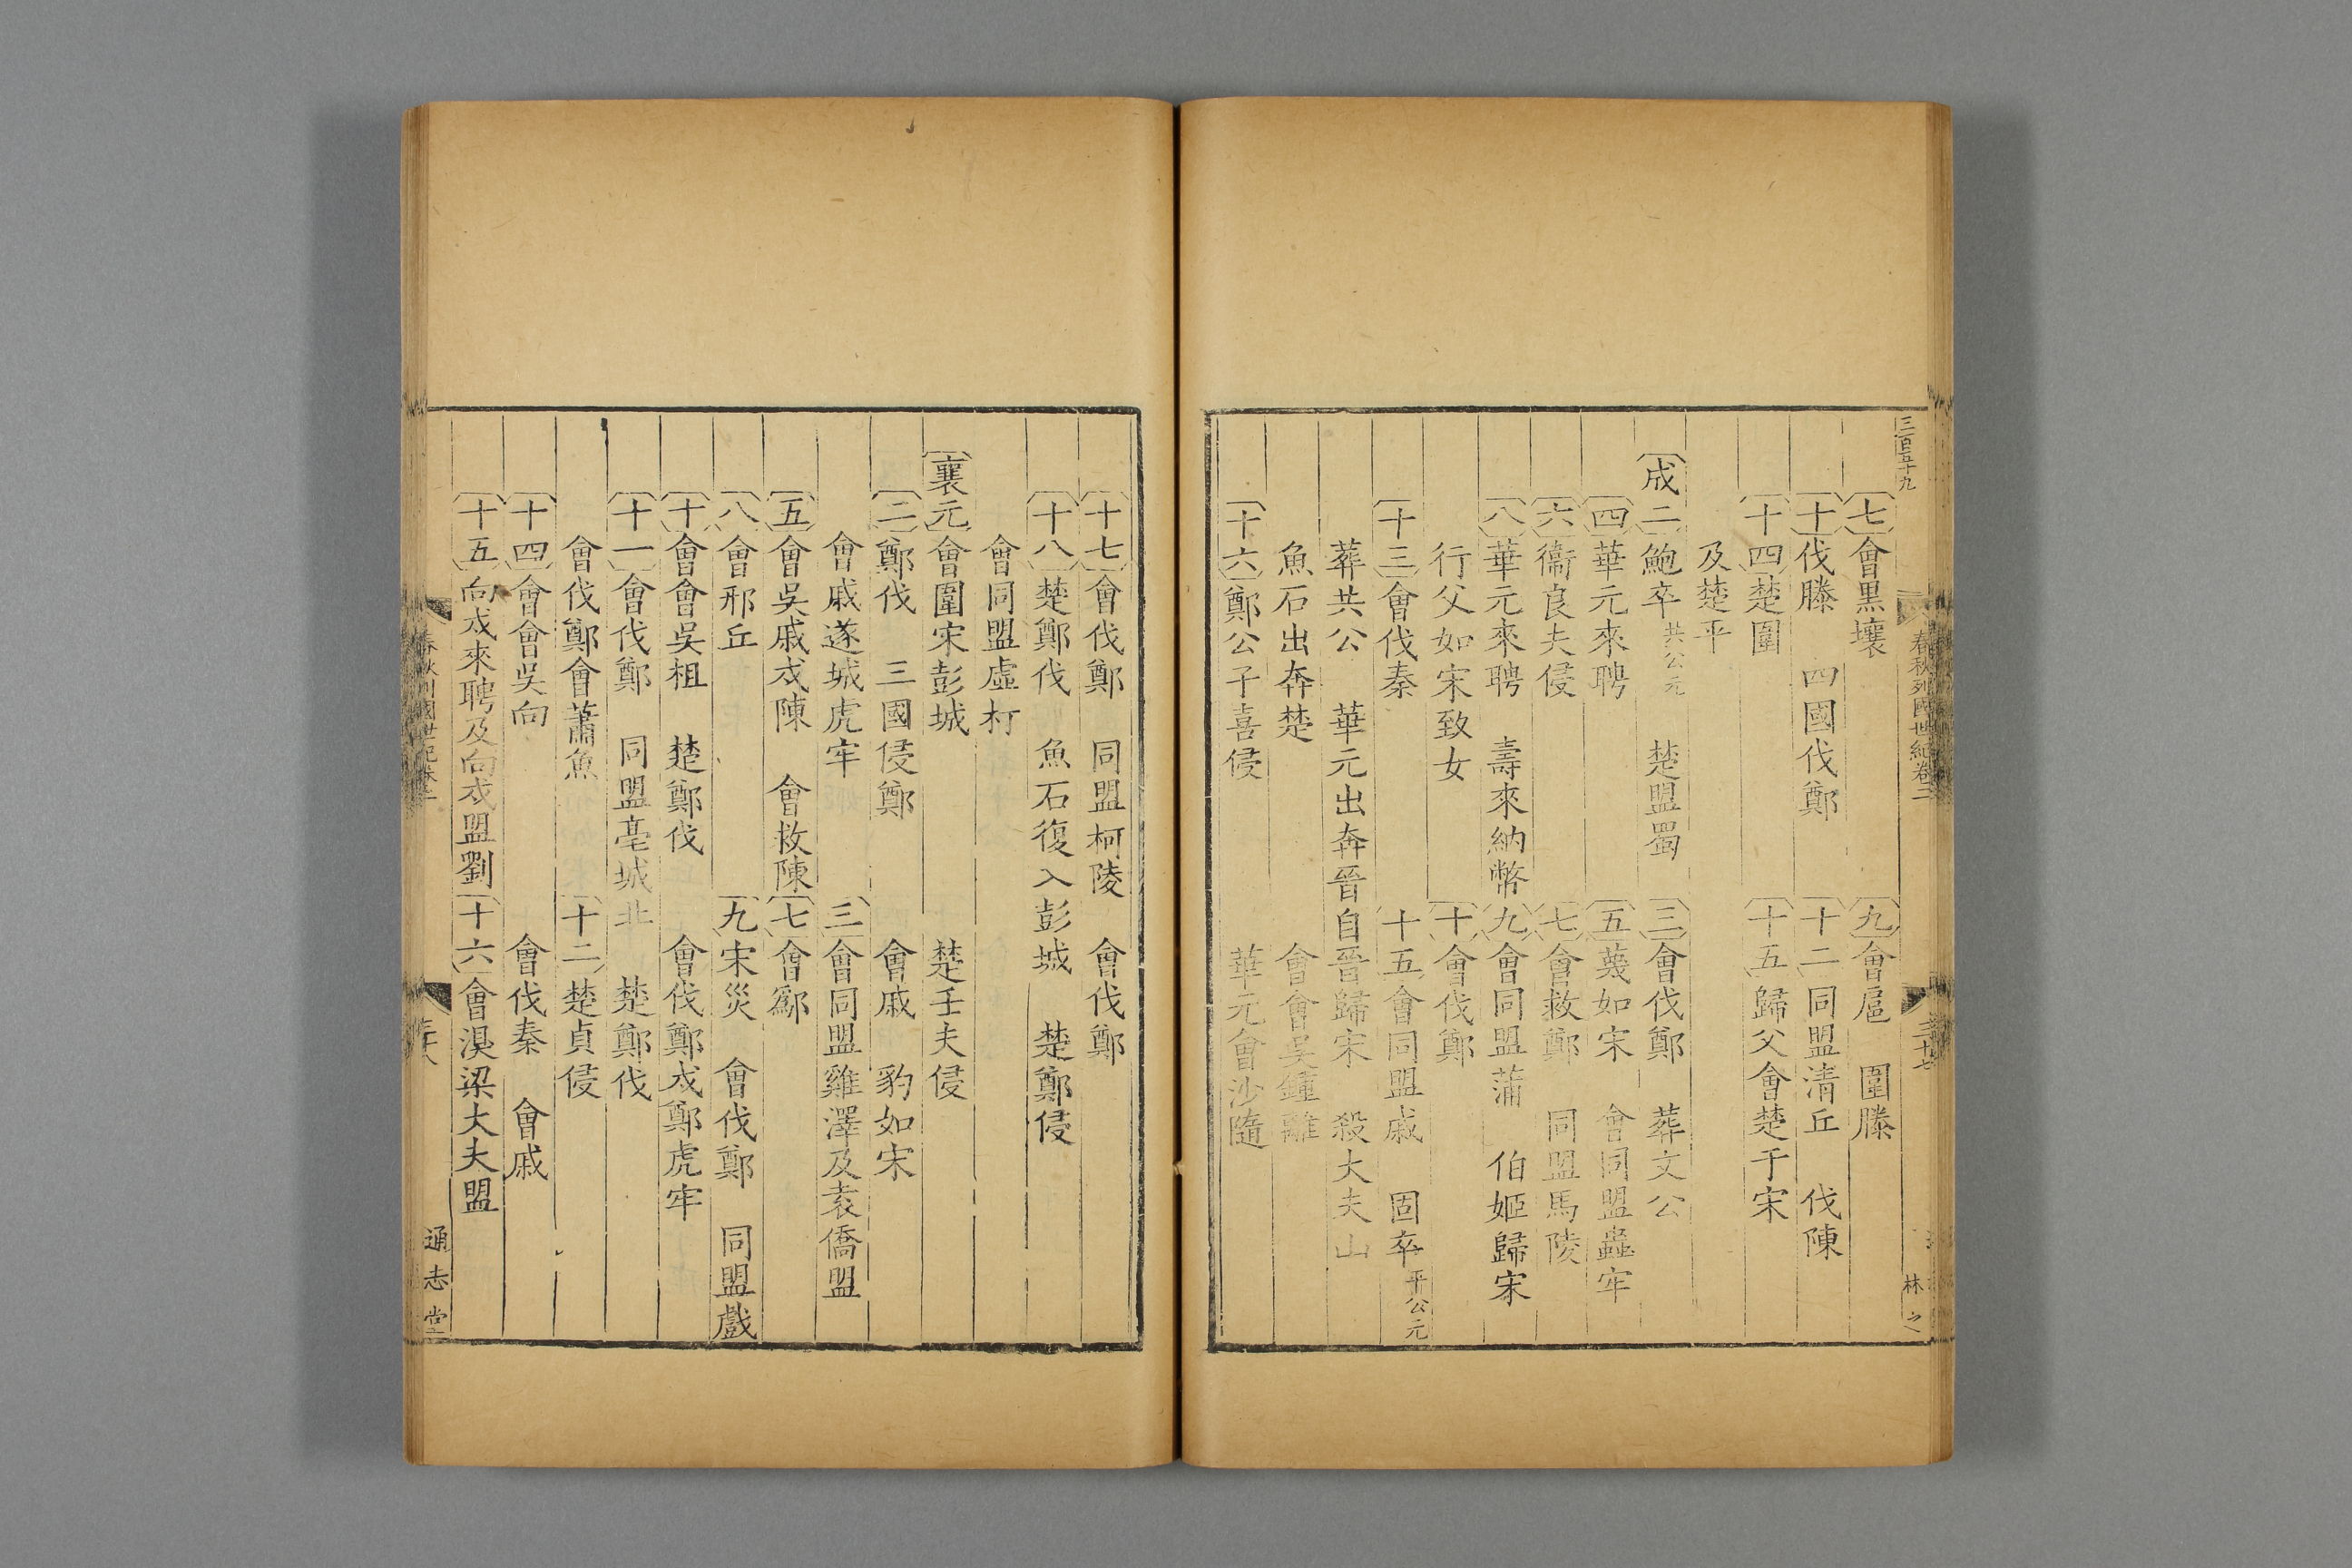 三百五十九
七會黑壤 九會扈 圍滕
十伐滕 四國伐鄭 十二同盟清丘 伐陳
十四楚圍 十五歸父會楚于宋
及楚平
成二鮑卒共公元 楚盟蜀 三會伐鄭 葬文公
四華元來聘 五蔑如宋 會同盟蟲牢
六衞良夫侵 七會救鄭 同盟馬陵
八華元來聘 壽來納幣 九會同盟蒲 伯姬歸宋
行父如宋致女 十會伐鄭
十三會伐秦 十五會同盟戚 固卒平公元
葬共公 華元出奔晉自晉歸宋 殺大夫山
魚石出奔楚 會會吳鍾離
十六鄭公子喜侵 華元會沙隨
春秋列國世紀卷二 三十七
林 之
十七會伐鄭 同盟柯陵 會伐鄭
十八楚鄭伐 魚石復入彭城 楚鄭侵
會同盟虛朾
襄元會圍宋彭城 楚壬夫侵
二鄭伐 三國侵鄭 會戚 豹如宋
會戚遂城虎牢 三會同盟雞澤及袁僑盟
五會吳戚戍陳 會救陳 七會鄬
八會邢丘 九宋災 會伐鄭 同盟戲
十會會吳柤 楚鄭伐 會伐鄭戍鄭虎牢
十一會伐鄭 同盟亳城北 楚鄭伐
會伐鄭會蕭魚 十二楚貞侵
十四會會吳向 會伐秦 會戚
十五向戍來聘及向戍盟劉 十六會湨梁大夫盟
春秋列國世紀卷二 三十八
通志堂